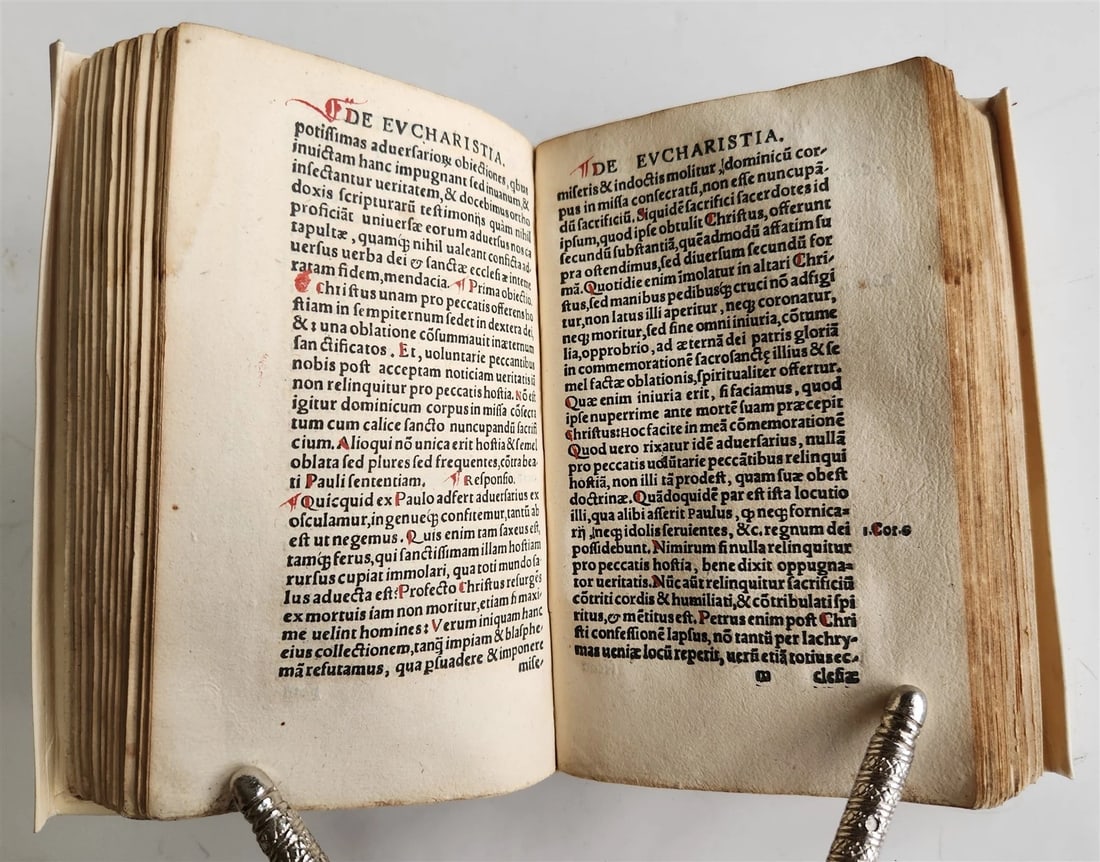 ¶ DE EVCHARISTIA.
potiſſimas aduerſarioꝝ obiectiones, qbus
inuictam hanc impugnant ſed inuanum, &
inſectantur ueritatem, & docebimus ortho
doxis ſcripturarũ teſtimonijs quàm nihil
proficiãt uniuerſæ eorum aduerſus nos ca
tapultæ, quamq̃ nihil ualeant conficta ad
uersus uerba dei & ſanctæ eccleſiæ inteme
ratam fidem, mendacia. ¶ Prima obiectio.
Chriſtus unam pro peccatis offerens ho
ſtiam in ſempiternum ſedet in dextera dei,
& : una oblatione cõſummauit inæternum
ſanctificatos. Et, uoluntarie peccantibus
nobis poſt acceptam noticiam ueritatis iã
non relinquitur pro peccatis hoſtia. Nõ eſt
igitur dominicum corpus in miſſa cõſecra
tum cum calice ſancto nuncupandũ ſacrifi
cium. Alioqui nõ unica erit hoſtia & ſemel
oblata ſed plures ſed frequentes, cõtra bea-
ti Pauli ſententiam. ¶ Reſponſio.
¶ Quicquid ex Paulo adfert aduerſarius ex
oſculamur, ingenueq̃ confitemur, tantũ ab
eſt ut negemus. Quis enim tam ſaxeus eſt,
tamq̃ ferus, qui ſanctiſſimam illam hoſtiam
rurſus cupiat immolari, qua toti mundo ſa-
lus aduecta eſt? Profecto Chriſtus reſurgẽs
ex mortuis iam non moritur, etiam ſi maxi-
me uelint homines: Verum iniquam hanc
eius collectionem, tanq̃ impiam & blaſphe-
mã refutamus, qua ꝑſuadere & imponere
miſe-
¶ DE EVCHARISTIA.
miſeris & indoctis molitur, dominicũ cor-
pus in miſſa conſecratũ, non eſſe nuncupã-
dũ ſacrificiũ. Siquidẽ ſacrifici ſacerdotes id
ipſum, quod ipſe obtulit Chriſtus, offerunt
ſecundũ ſubſtantiã, quẽadmodũ affatim ſu
pra oſtendimus, ſed diuerſum ſecundũ for
mã. Quotidie enim imolatur in altari Chri-
ſtus, ſed manibus pedibusq̃ cruci nõ adfigi
tur, non latus illi aperitur, neq̃ coronatur,
neq̃ moritur, ſed ſine omni iniuria, cõtume
lia, opprobrio, ad æternã dei patris gloriã
in commemorationẽ ſacroſanctę illius & ſe
mel factæ oblationis, ſpiritualiter offertur.
Quæ enim iniuria erit, ſi faciamus, quod
ipſe nuperrime ante mortẽ ſuam præcepit
Chriſtus: Hoc facite in meã cõmemorationẽ
Quod uero rixatur idẽ aduerſarius, nullã
pro peccatis uolũtarie peccãtibus relinqui
hoſtiã, non illi tã prodeſt, quam ſuæ obeſt
doctrinæ. Quãdoquidẽ par eſt iſta locutio
illi, qua alibi aſſerit Paulus, ꝙ neq̃ fornica-
rij, neq̃ idolis ſeruientes, &c. regnum dei
1. Cor. 6
poſſidebunt. Nimirum ſi nulla relinquitur
pro peccatis hoſtia, bene dixit oppugna-
tor ueritatis. Nũc aũt relinquitur ſacrificiũ
cõtriti cordis & humiliati, & cõtribulati ſpi
ritus, & mẽtitus eſt. Petrus enim poſt Chri
ſti confeſſionẽ lapſus, nõ tantũ per lachry-
mas ueniæ locũ reperit, uerũ etiã totius ec-
m cleſiæ